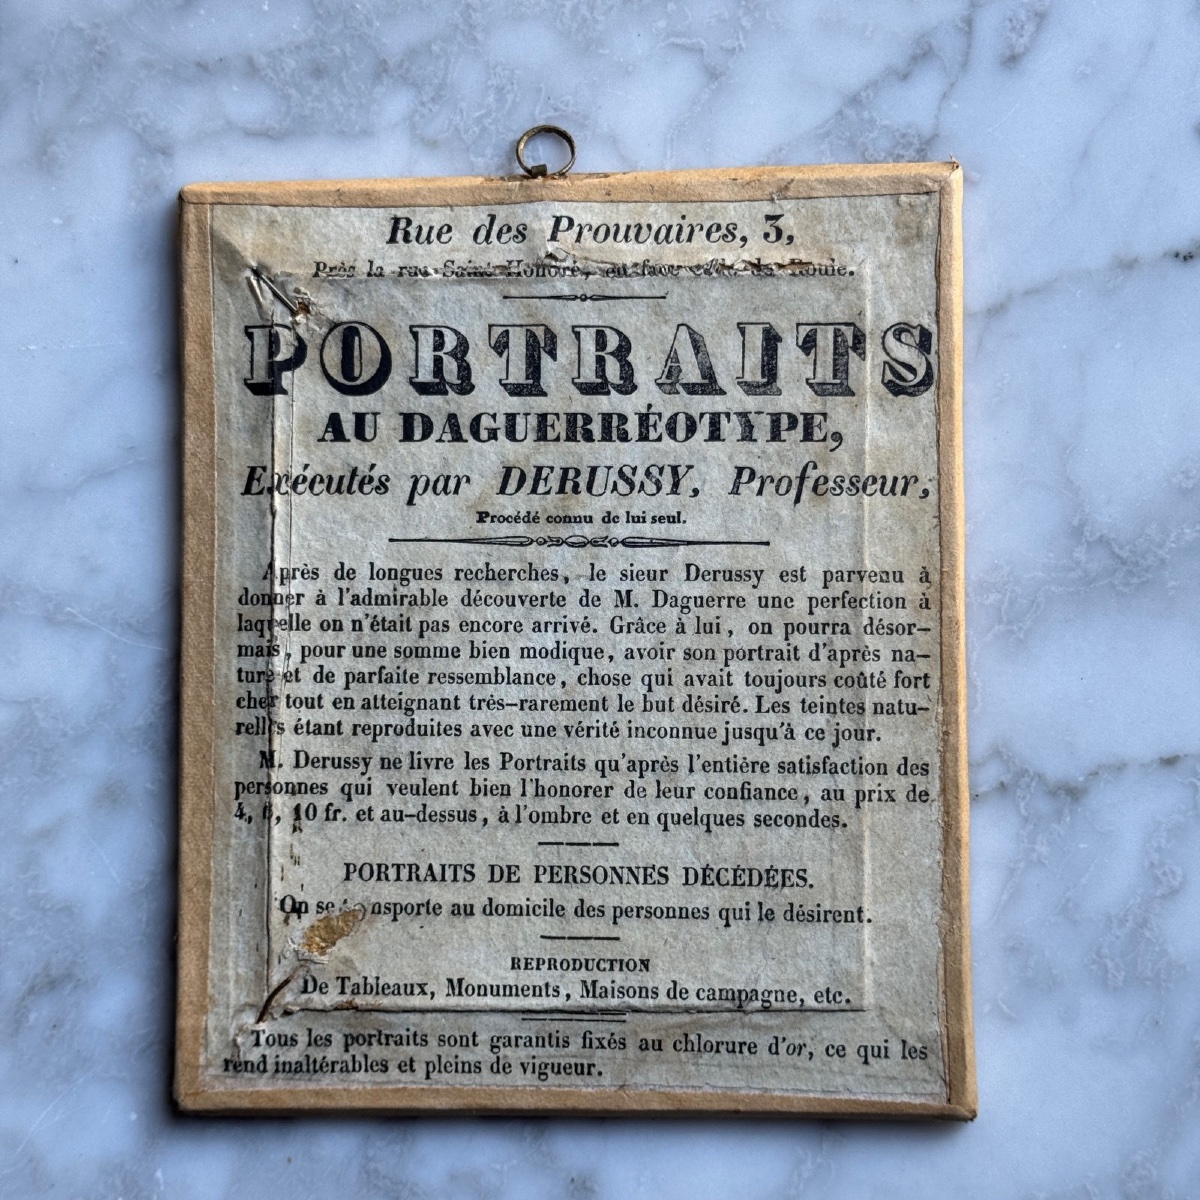 Rue des Prouvaires, 3,
Près la rue Saint-Honoré, en face celle du Roule.
PORTRAITS
AU DAGUERRÉOTYPE,
Exécutés par DERUSSY, Professeur,
Procédé connu de lui seul.
Après de longues recherches, le sieur Derussy est parvenu à
donner à l'admirable découverte de M. Daguerre une perfection à
laquelle on n'était pas encore arrivé. Grâce à lui, on pourra désor-
mais, pour une somme bien modique, avoir son portrait d'après na-
ture et de parfaite ressemblance, chose qui avait toujours coûté fort
cher tout en atteignant très-rarement le but désiré. Les teintes natu-
relles étant reproduites avec une vérité inconnue jusqu'à ce jour.
M. Derussy ne livre les Portraits qu'après l'entière satisfaction des
personnes qui veulent bien l'honorer de leur confiance, au prix de
4, 6, 10 fr. et au-dessus, à l'ombre et en quelques secondes.
PORTRAITS DE PERSONNES DÉCÉDÉES.
On se transporte au domicile des personnes qui le désirent.
REPRODUCTION
De Tableaux, Monuments, Maisons de campagne, etc.
Tous les portraits sont garantis fixés au chlorure d'or, ce qui les
rend inaltérables et pleins de vigueur.